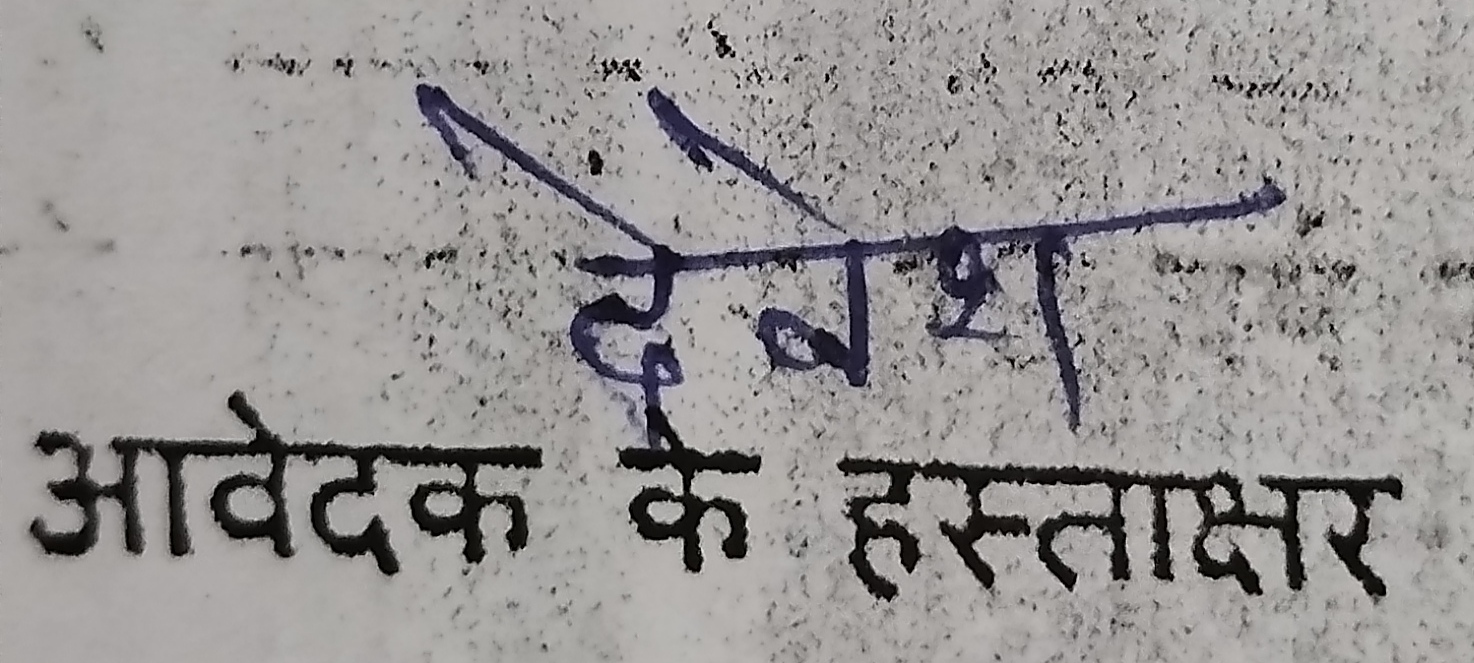 देवेश
आवेदक के हस्ताक्षर